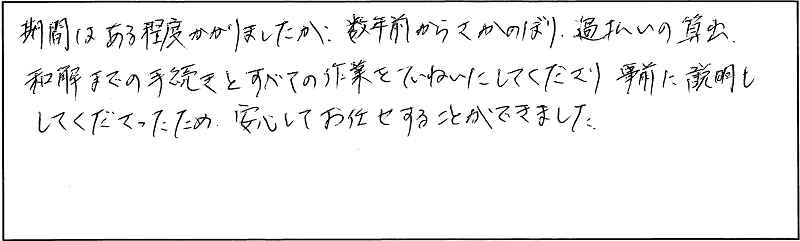 期間はある程度かかりましたが、数年前からさかのぼり、過払いの算出、
和解までの手続きとすべての作業をていねいにしてくださり 事前に説明も
してくださったため、安心してお任せすることができました。